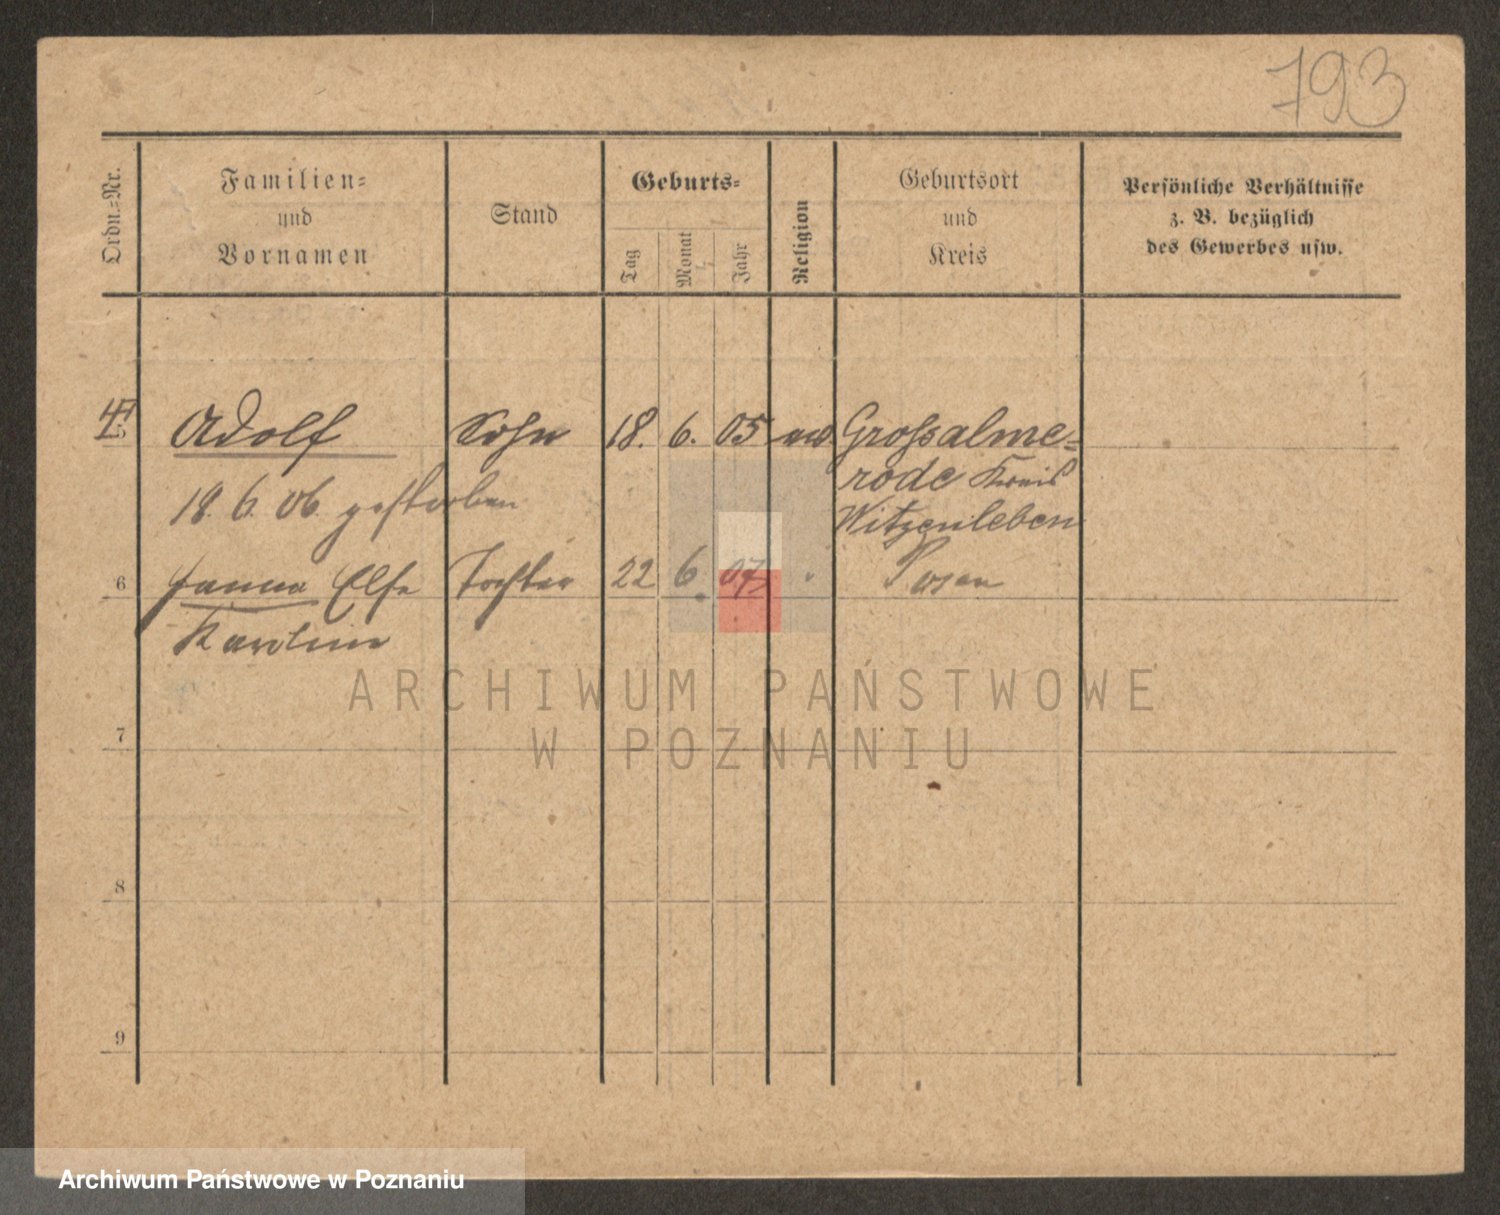 793
Ordn.-Nr.
Familien-
und
Vornamen
Stand
Geburts-
Tag
Monat
Jahr
Religion
Geburtsort
und
Kreis
Persönliche Verhältnisse
z. B. bezüglich
des Gewerbes usw.
Adolf Sohn 18. 6. 05 Grossalme-
rode Kreis
18. 6. 06. gestorben
Witzenleben
6 Hanna Else Tochter 22 6. 07 " Posen
Karoline
ARCHIWUM PAŃSTWOWE
7
W POZNANIU
8
9
Archiwum Państwowe w Poznaniu